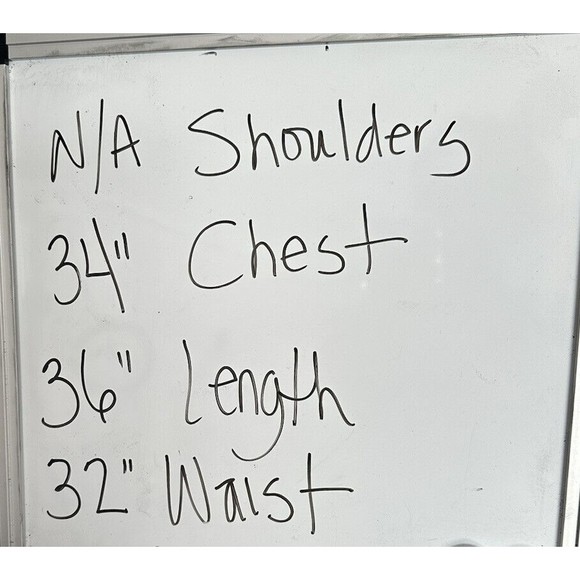 N/A Shoulders
34" Chest
36" Length
32" Waist